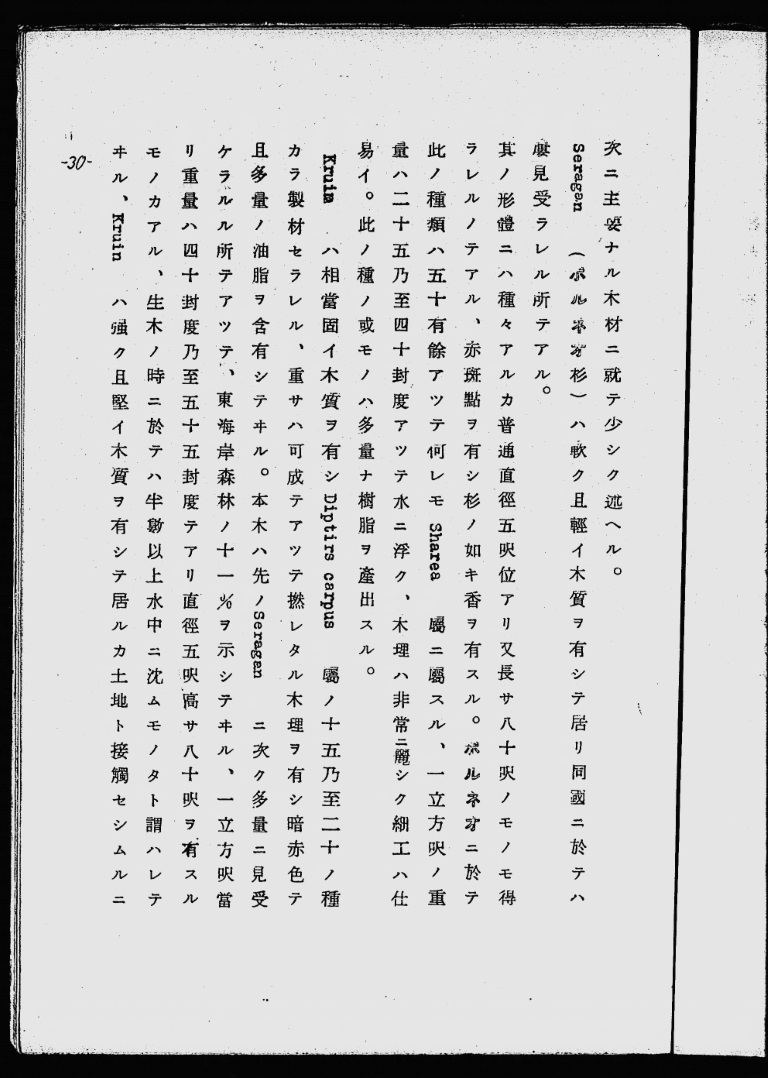 次ニ主要ナル木材ニ就テ少シク述ヘル。
Seragan (ボルネオ杉)ハ軟ク且輕イ木質ヲ有シテ居リ同國ニ於テハ
屡見受ラレル所テアル。
其ノ形體ニハ種々アルカ普通直徑五呎位アリ又長サ八十呎ノモノモ得
ラレルノテアル、赤斑點ヲ有シ杉ノ如キ香ヲ有スル。ボルネオニ於テ
此ノ種類ハ五十有餘アツテ何レモ Sharea 屬ニ屬スル、一立方呎ノ重
量ハ二十五乃至四十封度アツテ水ニ浮ク、木理ハ非常ニ麗シク細工ハ仕
易イ。此ノ種ノ或モノハ多量ナ樹脂ヲ產出スル。
Kruim ハ相當固イ木質ヲ有シ Diptirs carpus 屬ノ十五乃至二十ノ種
カラ製材セラレル、重サハ可成テアツテ撚レタル木理ヲ有シ暗赤色テ
且多量ノ油脂ヲ含有シテヰル。本木ハ先ノ Seragan ニ次ク多量ニ見受
ケラルル所テアツテ、東海岸森林ノ十一%ヲ示シテヰル、一立方呎當
リ重量ハ四十封度乃至五十五封度テアリ直徑五呎高サ八十呎ヲ有スル
モノカアル、生木ノ時ニ於テハ半數以上水中ニ沈ムモノタト謂ハレテ
ヰル、Kruin ハ强ク且堅イ木質ヲ有シテ居ルカ土地ト接觸セシムルニ
-30-